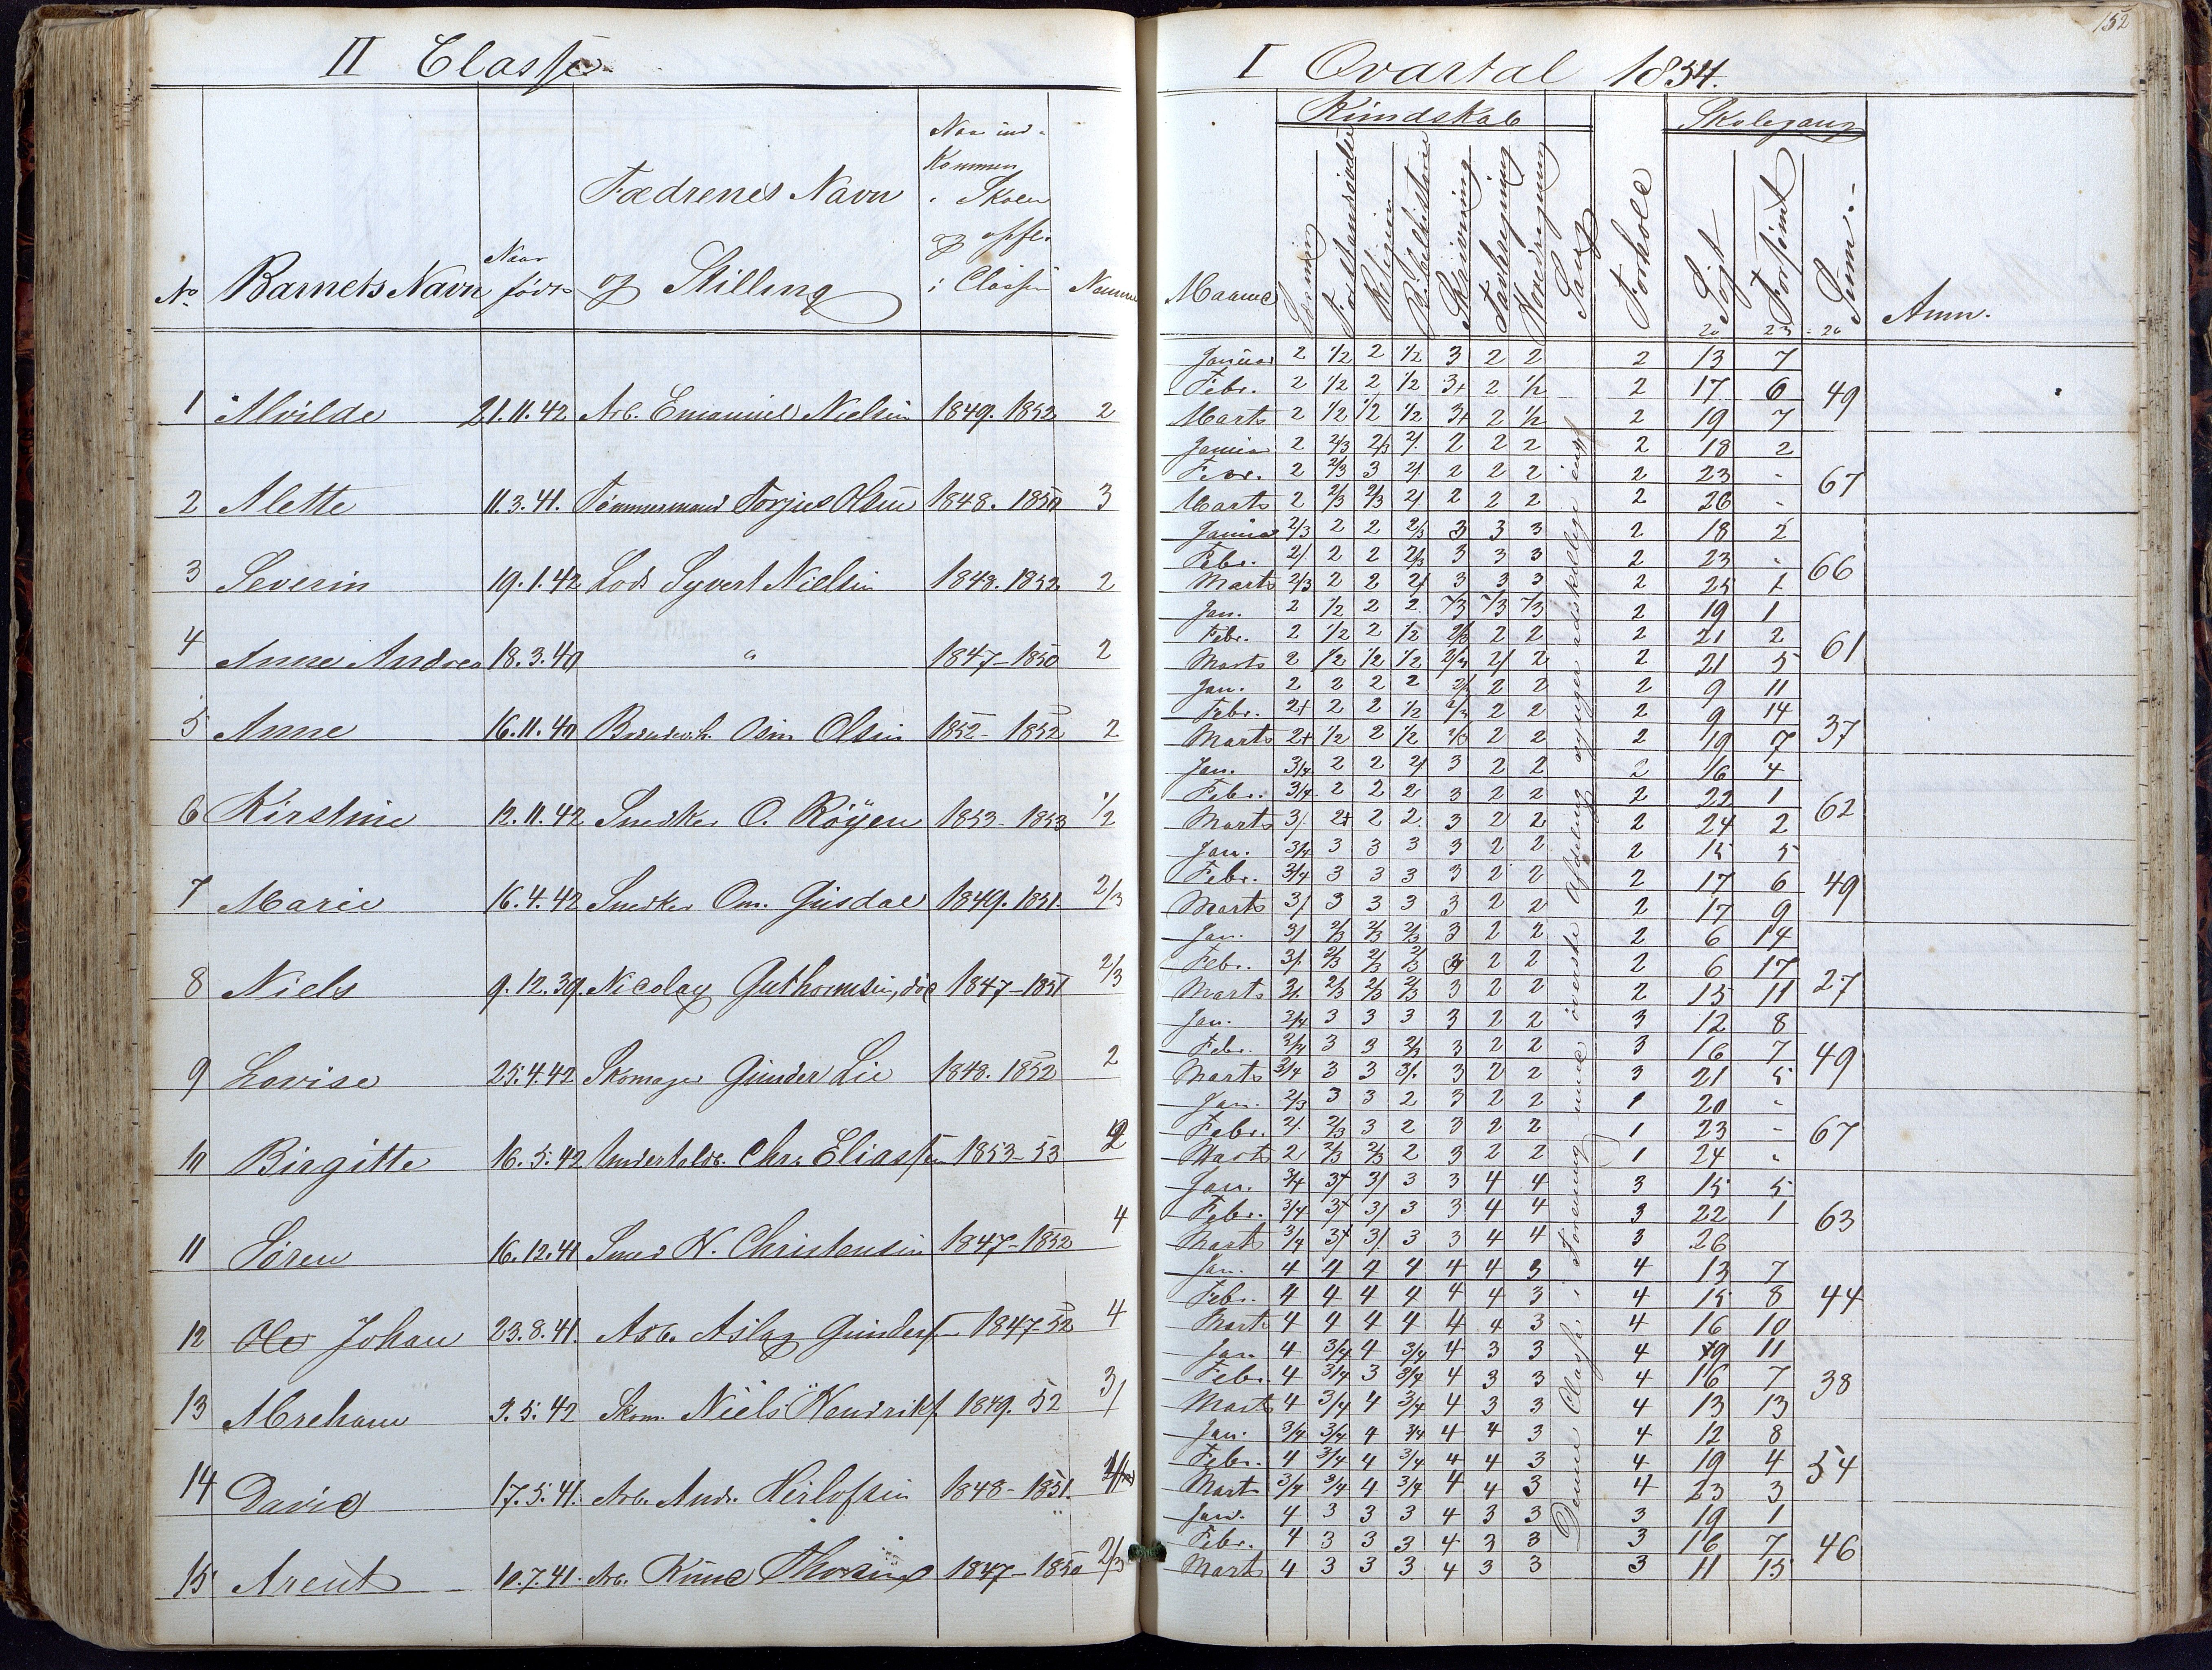 152
II Classe
I Qvartal 1854.
Kundskab Skolegang
No Barnets Navn Naar født Fædrenes Navn og Stilling Naar ind- Kommen i Skolen og opfl. i Classen
Maaned Læsning Forstandsøvelse Religion Bibelhistorie Skrivning Tavleregning Hovedregning Sang Forhold Søgt Forsømt Sum. Anm.
1 Alvilde 21.11.42 Arb. Emanuel Nielsen 1849. 1852 2
Januar 2 1/2 2 1/2 3 2 2 2 13 7
Febr. 2 1/2 2 1/2 3+ 2 1/2 2 17 6 49
Marts 2 1/2 1/2 1/2 3+ 2 1/2 2 19 7
2 Alette 11.3.41. Tømmermand Torjus Olsen 1848. 1850 3
Januar 2 2/3 2/3 2/ 2 2 2 2 18 2
Febr. 2 2/3 3 2/ 2 2 2 2 23 - 67
Marts 2 2/3 2/3 2/ 2 2 2 2 26 -
3 Severin 19.1.42 Lods Syvert Nielsen 1848. 1852 2
Januar 2/3 2 2 2/3 3 3 3 2 18 2
Febr. 2/ 2 2 2/3 3 3 3 2 23 - 66
Marts 2/3 2 2 2/ 3 3 3 2 25 1
4 Anne Andrea 18.3.40 " 1847-1850 2
Jan. 2 1/2 2 2 2/3 2/3 2/3 2 19 1
Febr. 2 1/2 2 1/2 2/3 2 2 2 21 2 61
Marts 2 1/2 1/2 1/2 2/3 2/ 2 2 21 5
5 Anne 16.11.40 Olsen 1852- 1852 2
Jan. 2 2 2 2 2/3 2 2 2 9 11
Febr. 2+ 2 2 1/2 2/3 2 2 2 9 14 37
Marts 2+ 1/2 2 1/2 2/3 2 2 2 19 7
6 Kirstine 12.11.42 Snedker O. Röyen 1853- 1853 1/2
Jan. 3/4 2 2 2/ 3 2 2 2 16 4
Febr. 3/4 2 2 2 3 2 2 2 22 1 62
Marts 3/ 2+ 2 2 3 2 2 2 24 2
7 Marie 16.4.42 Snedker Om. Gusdal 1849. 1851. 2/3
Jan. 3/4 3 3 3 3 2 2 2 15 5
Febr. 3/4 3 3 3 3 2 2 2 17 6 49
Marts 3/ 3 3 3 3 2 2 2 17 9
8 Niels 9.12.39. Nicolay Guthormsen, död 1847-1851 2/3
Jan. 3/ 2/3 2/3 2/3 3 2 2 2 6 14
Febr. 3/ 2/3 2/3 2/3 3 2 2 2 6 17 27
Marts 3/ 2/3 2/3 2/3 3 2 2 2 15 11
9 Lovise 25.4.42 Skomager Gunder Lie 1848. 1852 2
Jan. 3/4 3 3 3 3 2 2 3 12 8
Febr. 3/4 3 3 2/3 3 2 2 3 16 7 49
Marts 3/4 3 3 3/ 3 2 2 3 21 5
10 Birgitte 16.5.42 Chr. Eliassen 1853-53 2
Jan. 2/3 3 3 2 3 2 2 1 20 -
Febr. 2/ 2/3 3 2 3 2 2 1 23 - 67
Marts 2 2/3 2/3 2 3 2 2 1 24 -
11 Søren 16.12.41 Smed N. Christensen 1847-1852 4
Jan. 3/4 3+ 3/ 3 3 4 4 3 15 5
Febr. 3/4 3+ 3/ 3 3 4 4 3 22 1 63
Marts 3/4 3+ 3/ 3 3 4 4 3 26
12 Ole Johan 23.8.41. Arb. Aslag Gunders. 1847-52 4
Jan. 4 4 4 4 4 4 3 4 13 7
Febr. 4 4 4 4 4 4 3 4 15 8 44
Marts 4 4 4 4 4 4 3 4 16 10
13 Abreham 3.5.42 Skom. Niels Hendriks. 1849. 52 3/
Jan. 4 3/4 4 3/4 4 3 3 4 9 11
Febr. 4 3/4 3 3/4 4 3 3 4 16 7 38
Marts 4 3/4 4 3/4 4 3 3 4 13 13
14 David 17.5.41. Arb. Andr. Herlofsen 1848- 1851.
Jan. 3/4 3/4 4 3/4 4 4 3 4 12 8
Febr. 4 3/4 4 3/4 4 4 3 4 19 4 54
Marts 3/4 3/4 4 3/4 4 4 3 4 23 3
15 Arent 10.7.41. Arb. Knud 1847- 1850 2/3
Jan. 4 3 3 3 4 3 3 3 19 1
Febr. 4 3 3 3 4 3 3 3 16 7 46
Marts 4 3 3 3 4 3 3 3 11 15
Denne Classe i Forening med øverste Afdeling synger adskillige